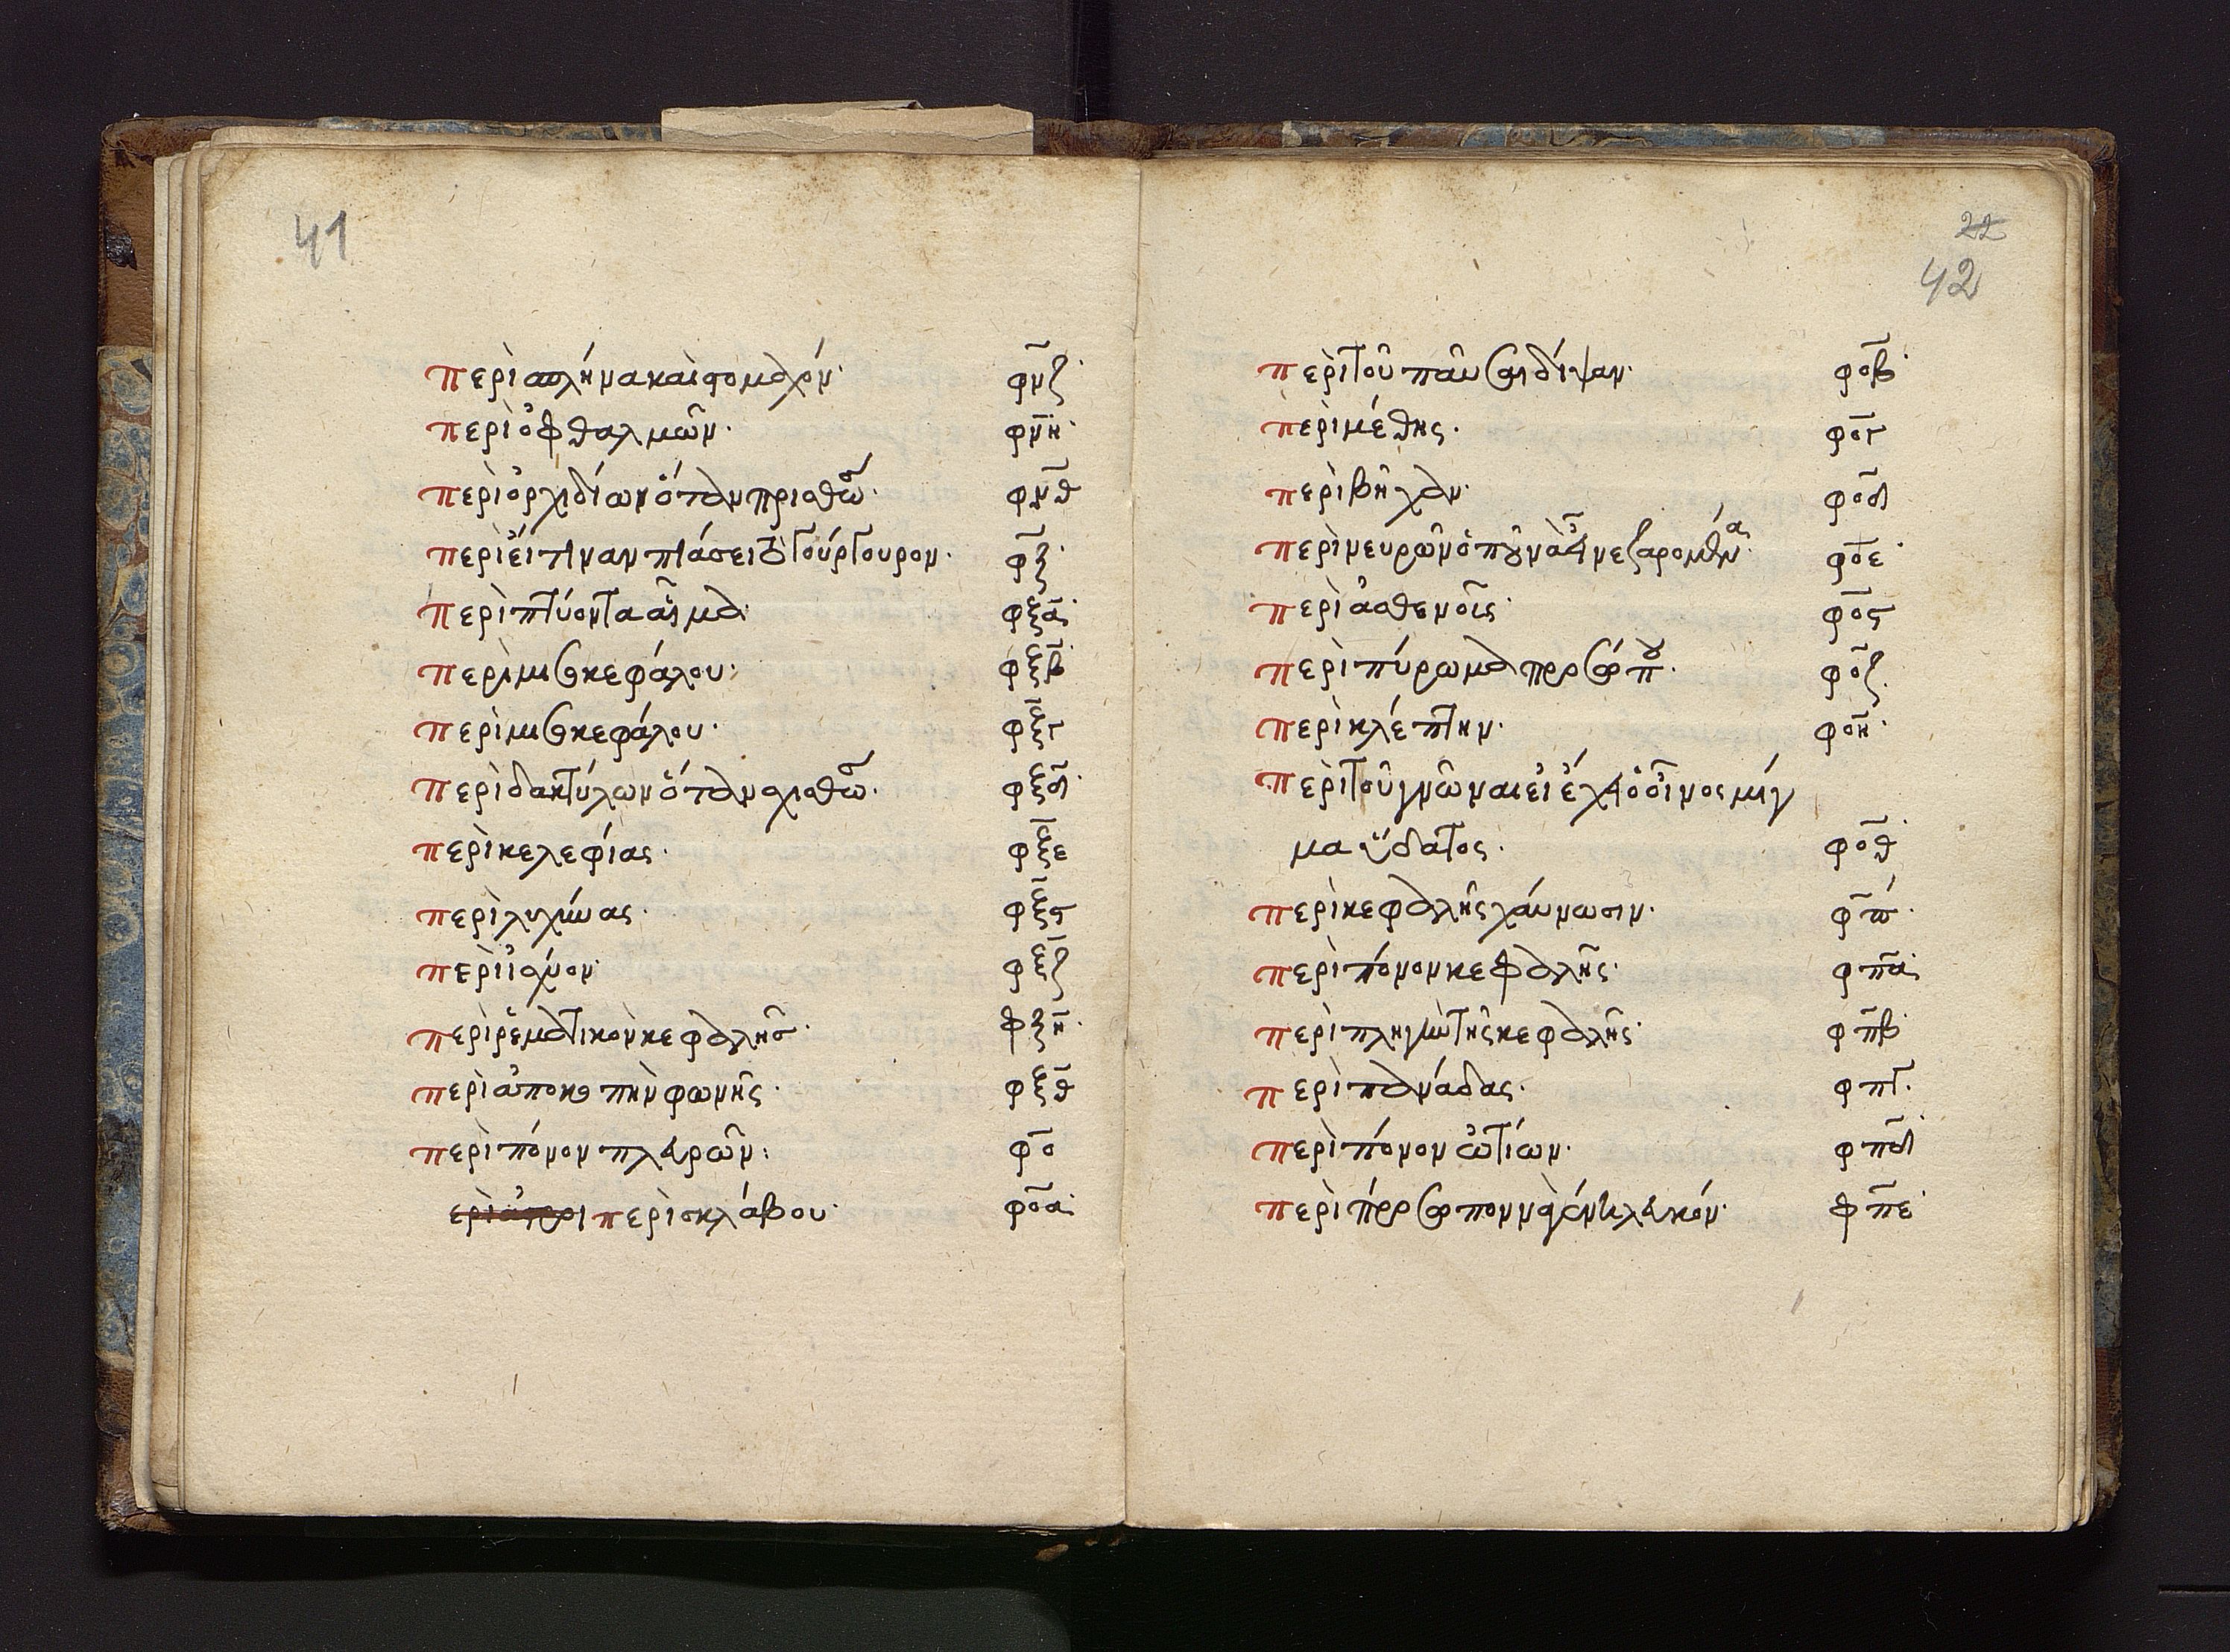 41
περὶ σπλήνα καὶ στομαχόν· φνζ
περὶ ὀφθαλμῶν· φνη
περὶ ὀρχιδίων ὅταν πρισθῶσι· φνθ
περὶ εἴ τιναν πιάσει τὸ τούρτουρον· φξ
περὶ πτύοντα αἷμα· φξα
περὶ μισοκεφάλου· φξβ
περὶ μισοκεφάλου· φξγ
περὶ δακτύλων ὅταν σχισθῶσι· φξδ
περὶ κελεφίας· φξε
περὶ λιχήνας· φξϛ
περὶ ἰσχύον· φξζ
περὶ ῥεματικοὺ κεφαλῆς· φξη
περὶ ἀποκοπὴν φωνῆς· φξθ
περὶ πόνον πλευρῶν: φο
περὶ σκλάβου· φοα
22
42
περὶ τοῦ παῦσαι δίψαν· φοβ
περὶ μέθης· φογ
περὶ βήχαν· φοδ
περὶ νευρῶν ὁποῦ νὰ εὖνε ζαρομένα· φοε
περὶ ἀσθενοῖς· φοϛ
περὶ πύρωμα προσώπου· φοζ
περὶ κλέπτην· φοη
περὶ τοῦ γνῶναι εἰ ἔχει ὁ οἶνος μίγ
μα ὕδατος· φοθ
περὶ κεφαλῆς χάυνωσιν· φπ
περὶ πόνον κεφαλῆς· φπα
περὶ πληγὴν τῆς κεφαλῆς· φπβ
περὶ πανάδας· φπγ
περὶ πόνον ὠτίων· φπδ
περὶ πρόσωπον φπε